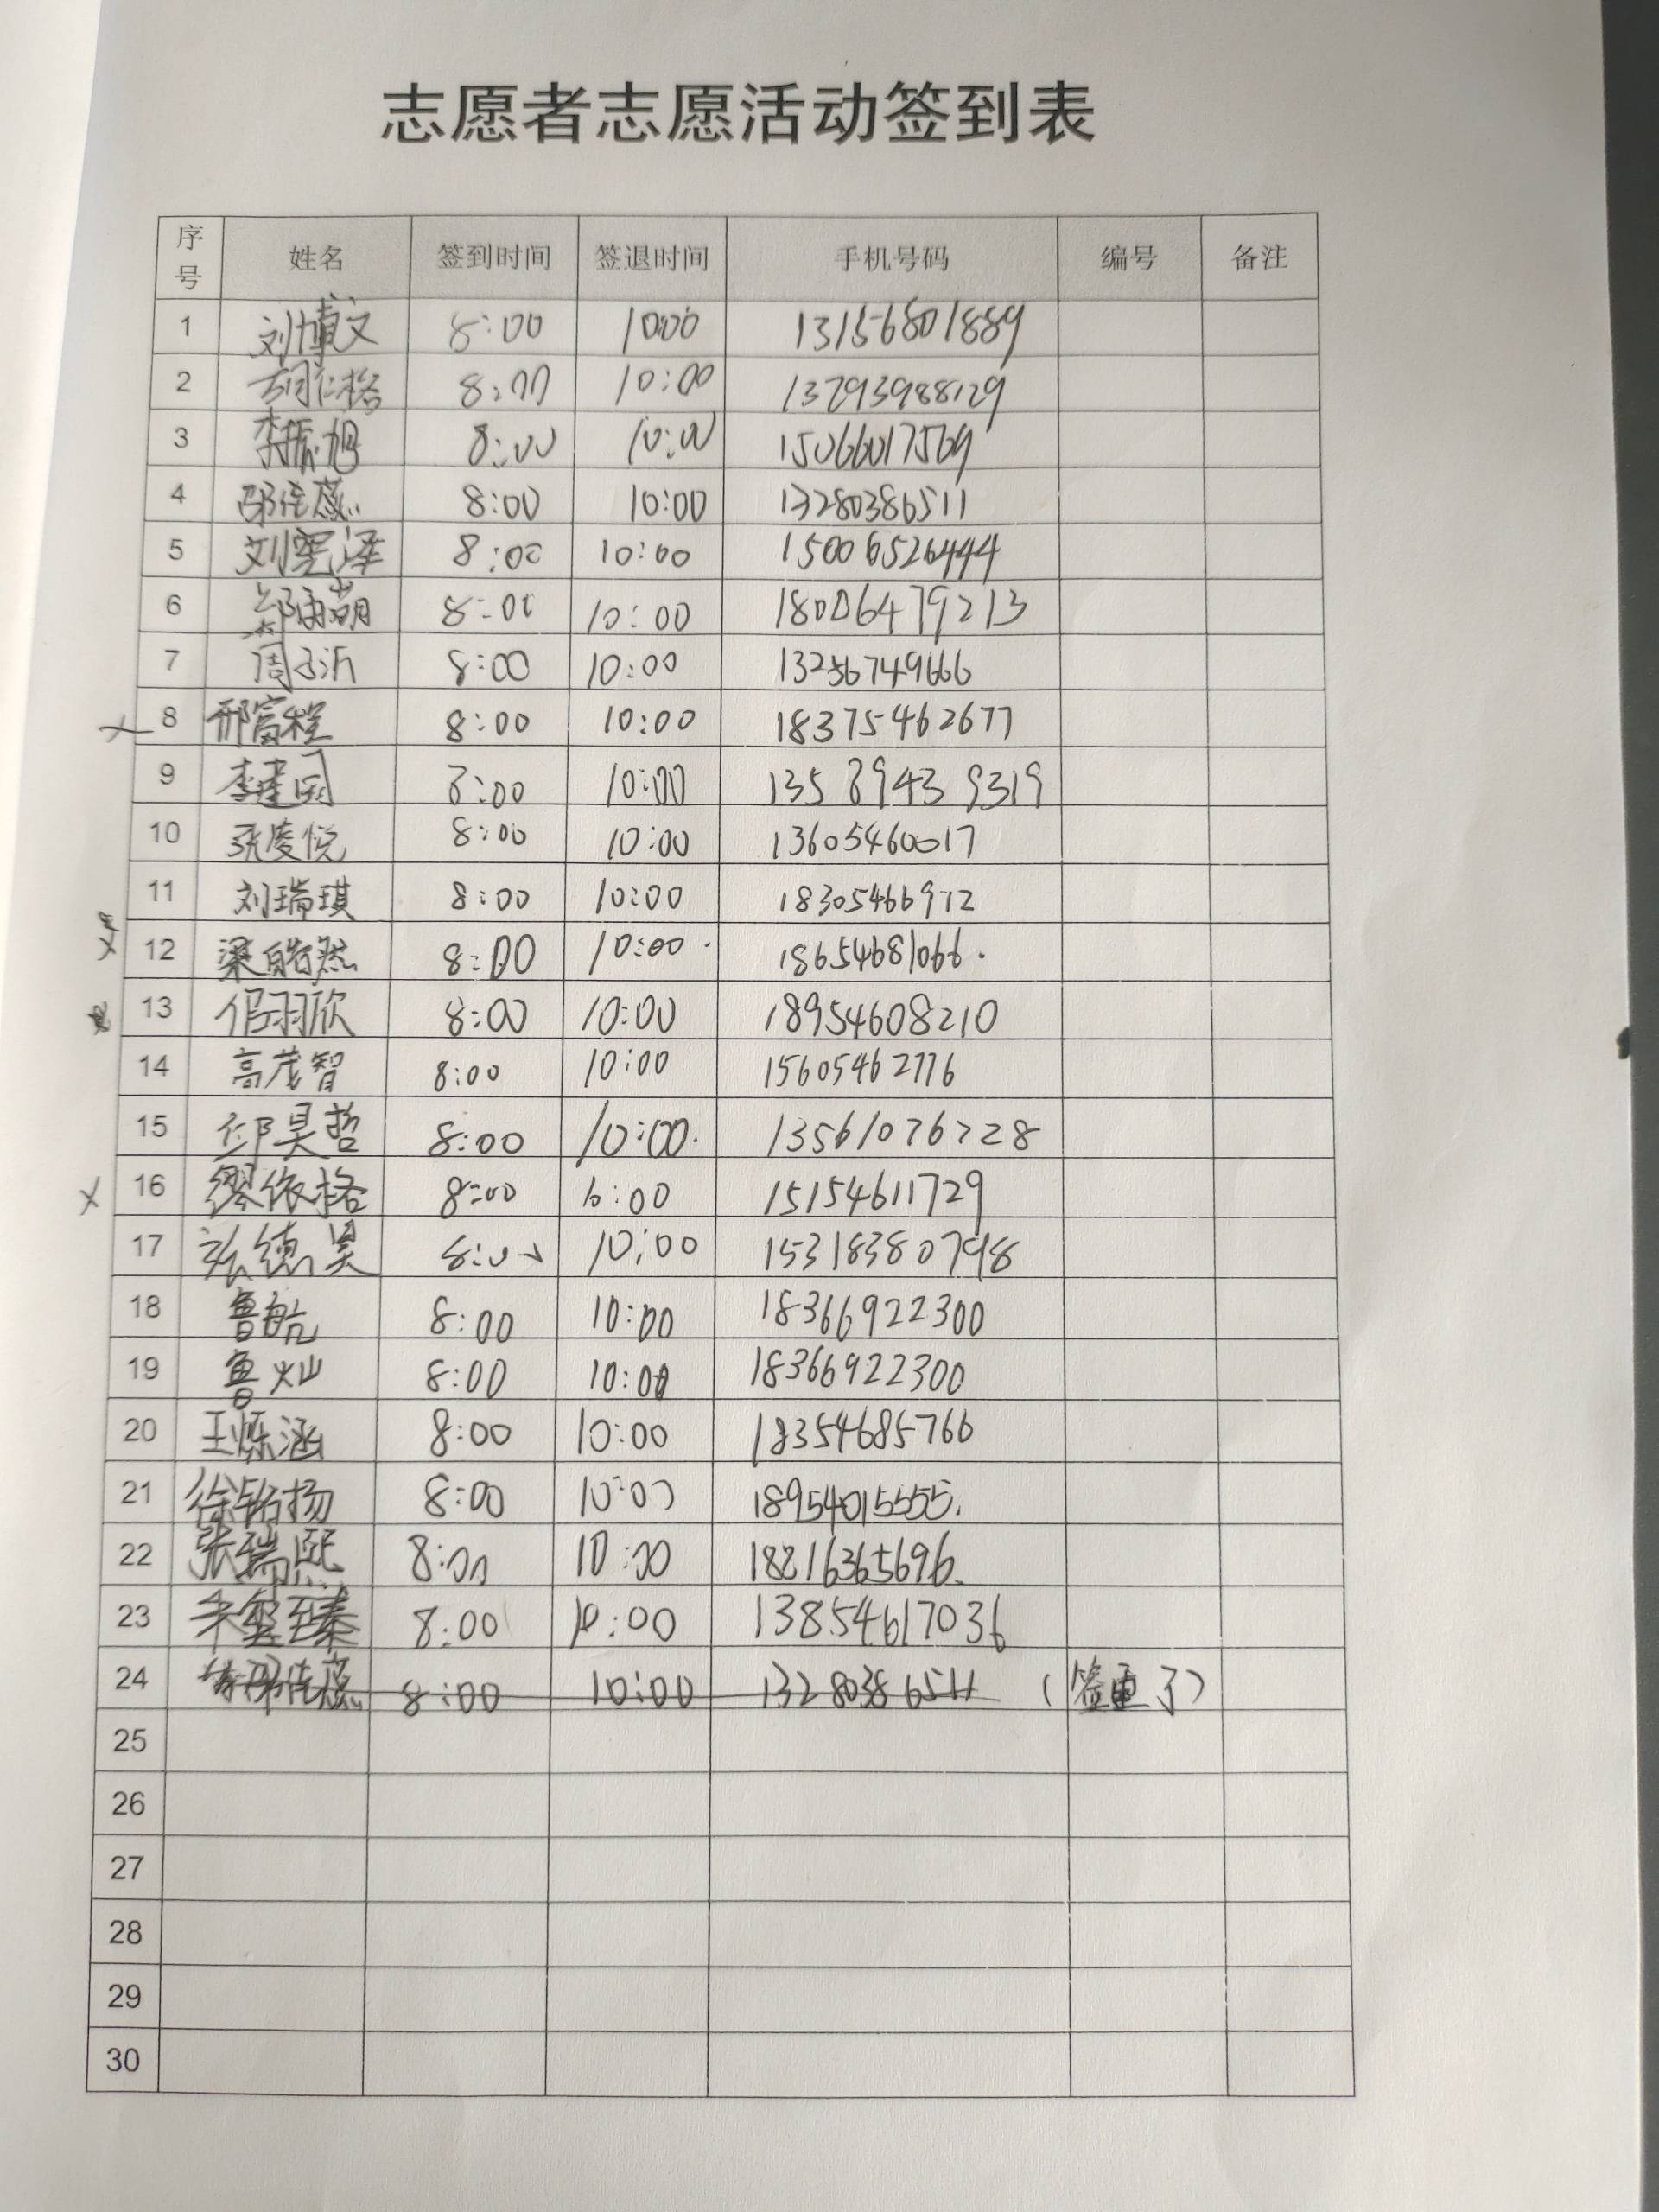 志愿者志愿活动签到表
序号 姓名 签到时间 签退时间 手机号码 编号 备注
1 刘博文 8:00 10:00 13156801889
2 胡仁格 8:00 10:00 13793988129
3 李振旭 8:00 10:00 15066017569
4 邵佳蕙 8:00 10:00 13280386511
5 刘宪泽 8:00 10:00 15006526444
6 8:00 10:00 18006479213
7 周子沂 8:00 10:00 13256749666
8 邢富程 8:00 10:00 18375462677
9 李建国 8:00 10:00 135 8943 9319
10 张凌悦 8:00 10:00 13605460017
11 刘瑞琪 8:00 10:00 18305466972
12 梁皓然 8:00 10:00 18654681066
13 8:00 10:00 18954608210
14 高茂智 8:00 10:00 15605462776
15 邹昊哲 8:00 10:00 13561076728
16 缪依格 8:00 10:00 15154611729
17 张德昊 8:00 10:00 15318380798
18 鲁航 8:00 10:00 18366922300
19 鲁灿 8:00 10:00 18366922300
20 王烁涵 8:00 10:00 18354685766
21 徐铭扬 8:00 10:00 18954015555
22 张瑞熙 8:00 10:00
23 8:00 10:00 13854617036
24 邵佳蕙 8:00 10:00 13280386511 (签重了)
25
26
27
28
29
30